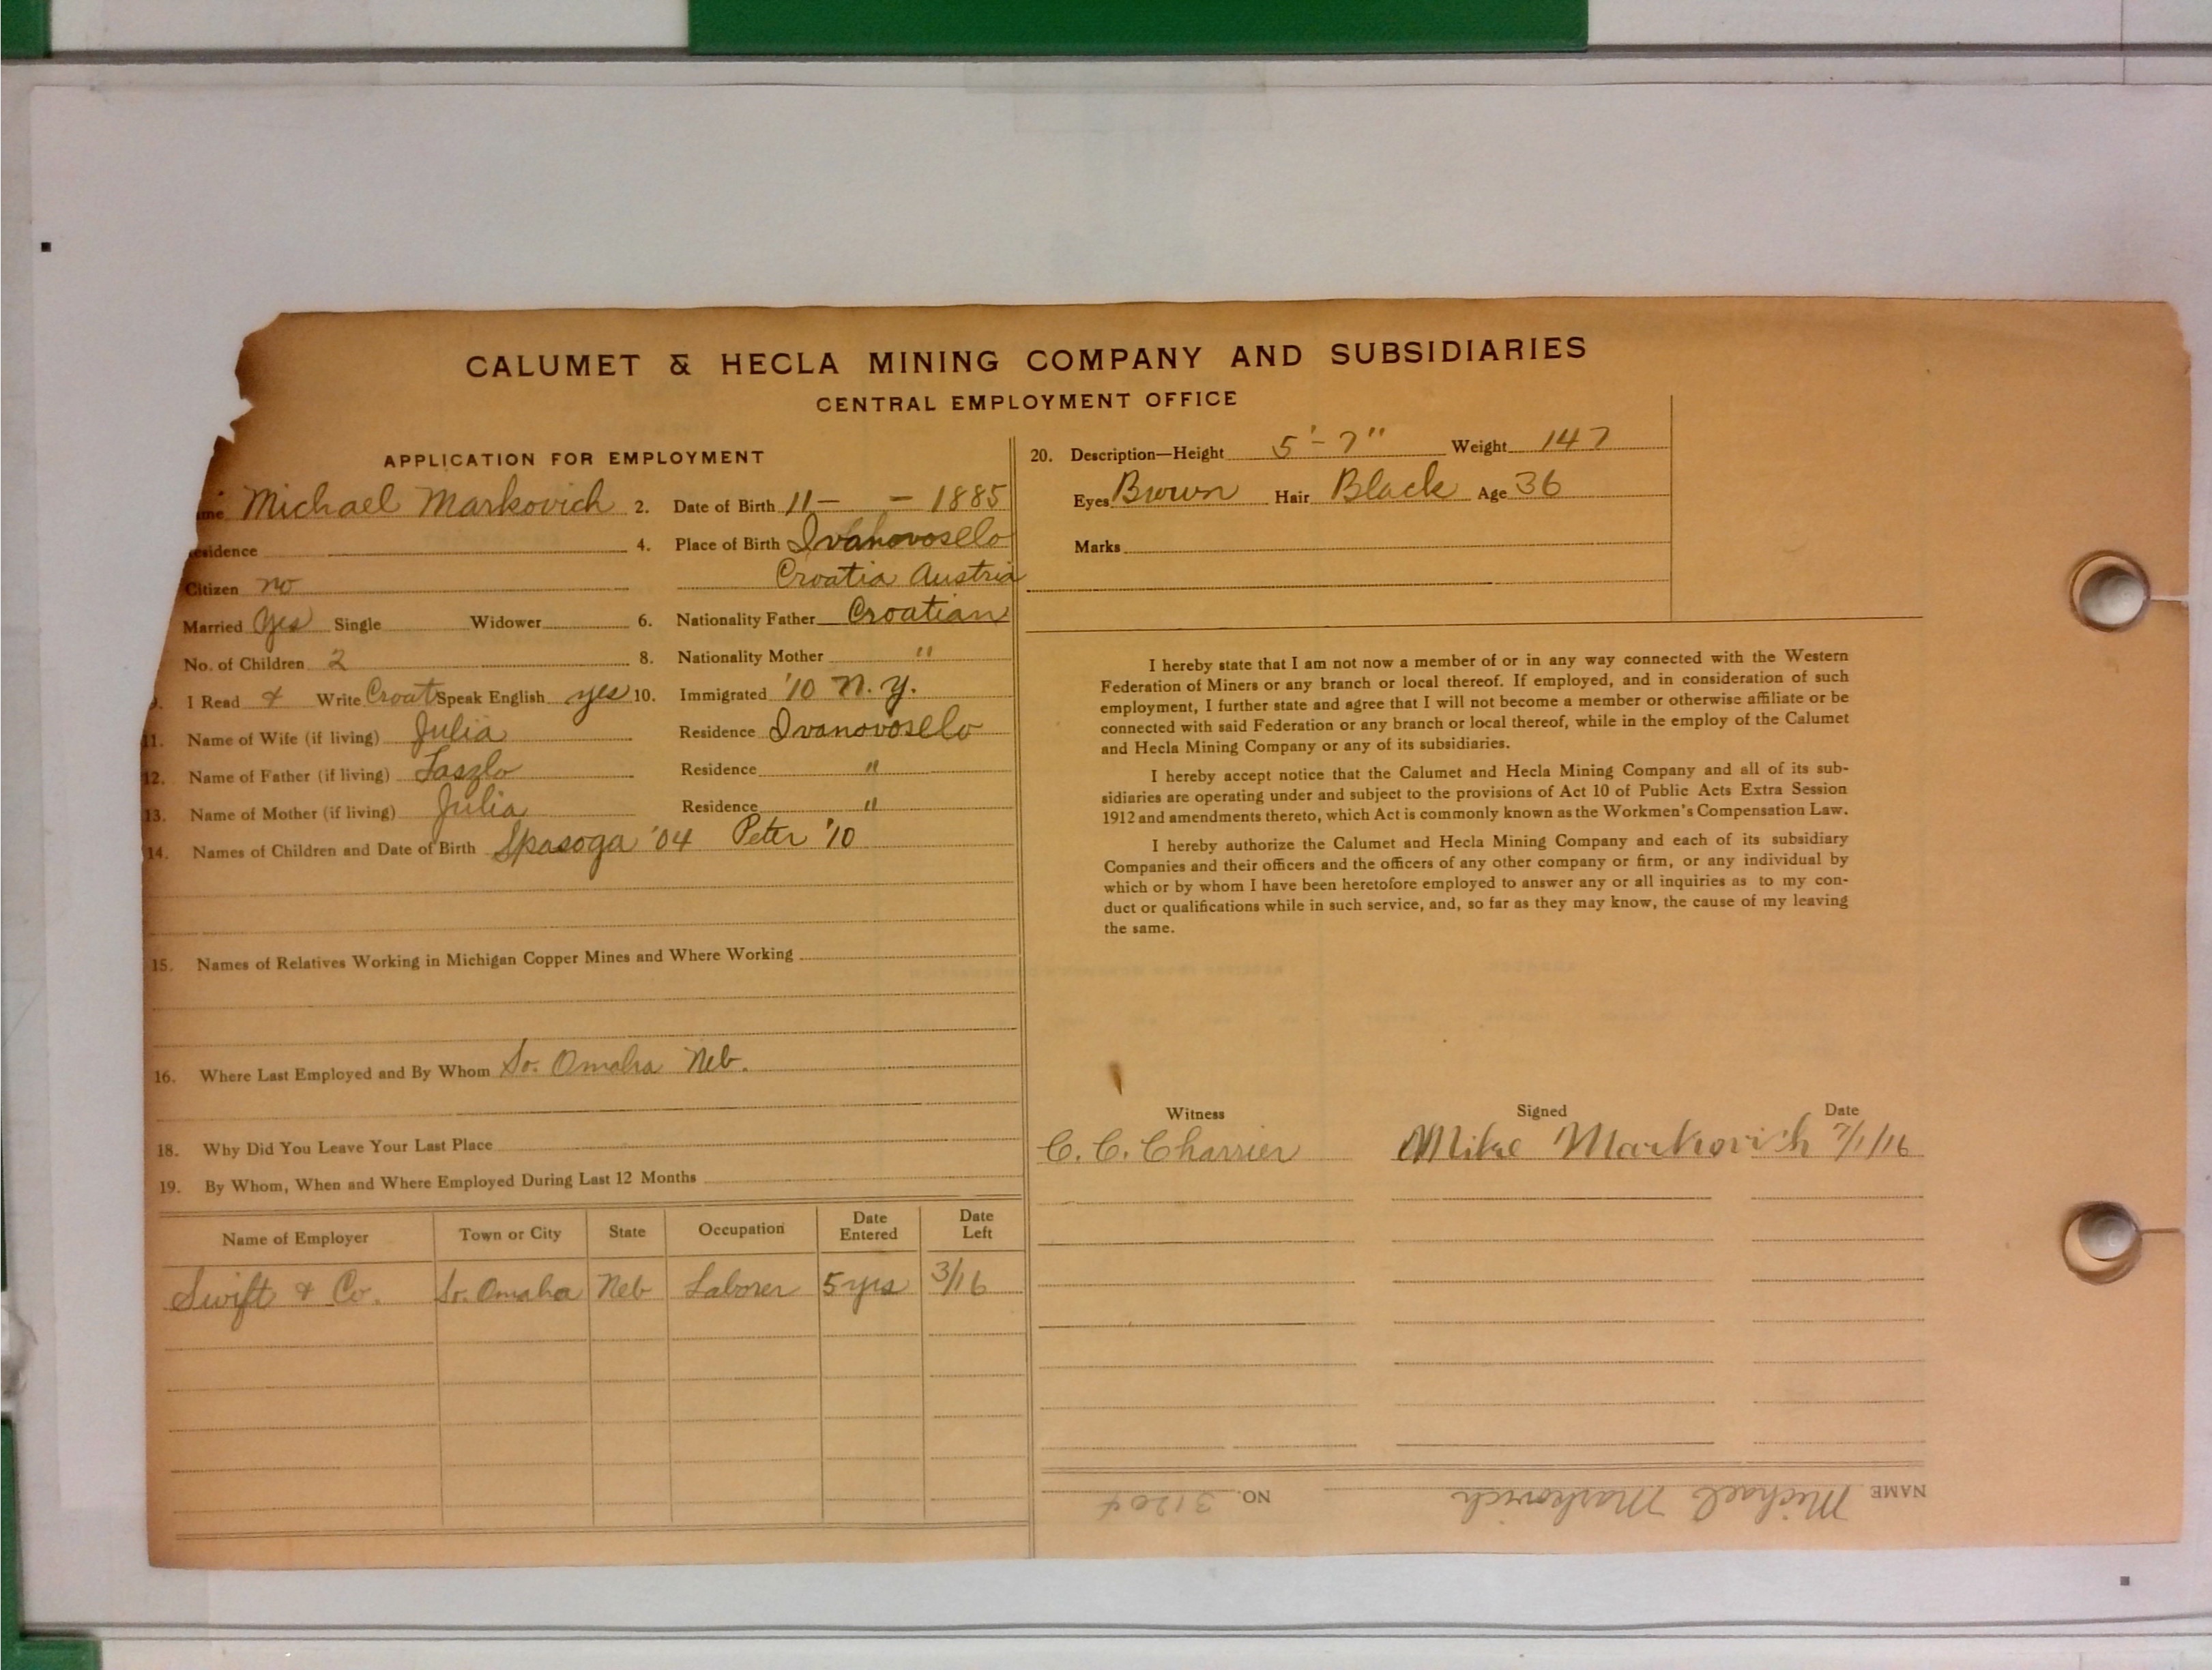 CALUMET & HECLA MINING COMPANY AND SUBSIDIARIES
CENTRAL EMPLOYMENT OFFICE
APPLICATION FOR EMPLOYMENT
me Michael Markovich 2. Date of Birth 11- - 1885
esidence 4. Place of Birth Ivanovoselo
Citizen no Croatia Austria
Married yes Single Widower 6. Nationality Father Croatian
No. of Children 2 8. Nationality Mother "
9. I Read & Write Croat Speak English yes 10. Immigrated '10 N.Y.
11. Name of Wife (if living) Julia Residence Ivanovoselo
12. Name of Father (if living) Laszlo Residence "
13. Name of Mother (if living) Julia Residence "
14. Names of Children and Date of Birth Spasoga '04 Peter '10
15. Names of Relatives Working in Michigan Copper Mines and Where Working
16. Where Last Employed and By Whom So. Omaha Neb.
18. Why Did You Leave Your Last Place
19. By Whom, When and Where Employed During Last 12 Months
Name of Employer Town or City State Occupation Date Entered Date Left
Swift & Co. So. Omaha Neb Laborer 5 yrs 3/16
20. Description—Height 5'-7" Weight 147
Eyes Brown Hair Black Age 36
Marks
I hereby state that I am not now a member of or in any way connected with the Western
Federation of Miners or any branch or local thereof. If employed, and in consideration of such
employment, I further state and agree that I will not become a member or otherwise affiliate or be
connected with said Federation or any branch or local thereof, while in the employ of the Calumet
and Hecla Mining Company or any of its subsidiaries.
I hereby accept notice that the Calumet and Hecla Mining Company and all of its sub-
sidiaries are operating under and subject to the provisions of Act 10 of Public Acts Extra Session
1912 and amendments thereto, which Act is commonly known as the Workmen's Compensation Law.
I hereby authorize the Calumet and Hecla Mining Company and each of its subsidiary
Companies and their officers and the officers of any other company or firm, or any individual by
which or by whom I have been heretofore employed to answer any or all inquiries as to my con-
duct or qualifications while in such service, and, so far as they may know, the cause of my leaving
the same.
Witness Signed Date
C. C. Charrier Mike Markovich 7/1/16
NAME Michael Markovich NO. 31204